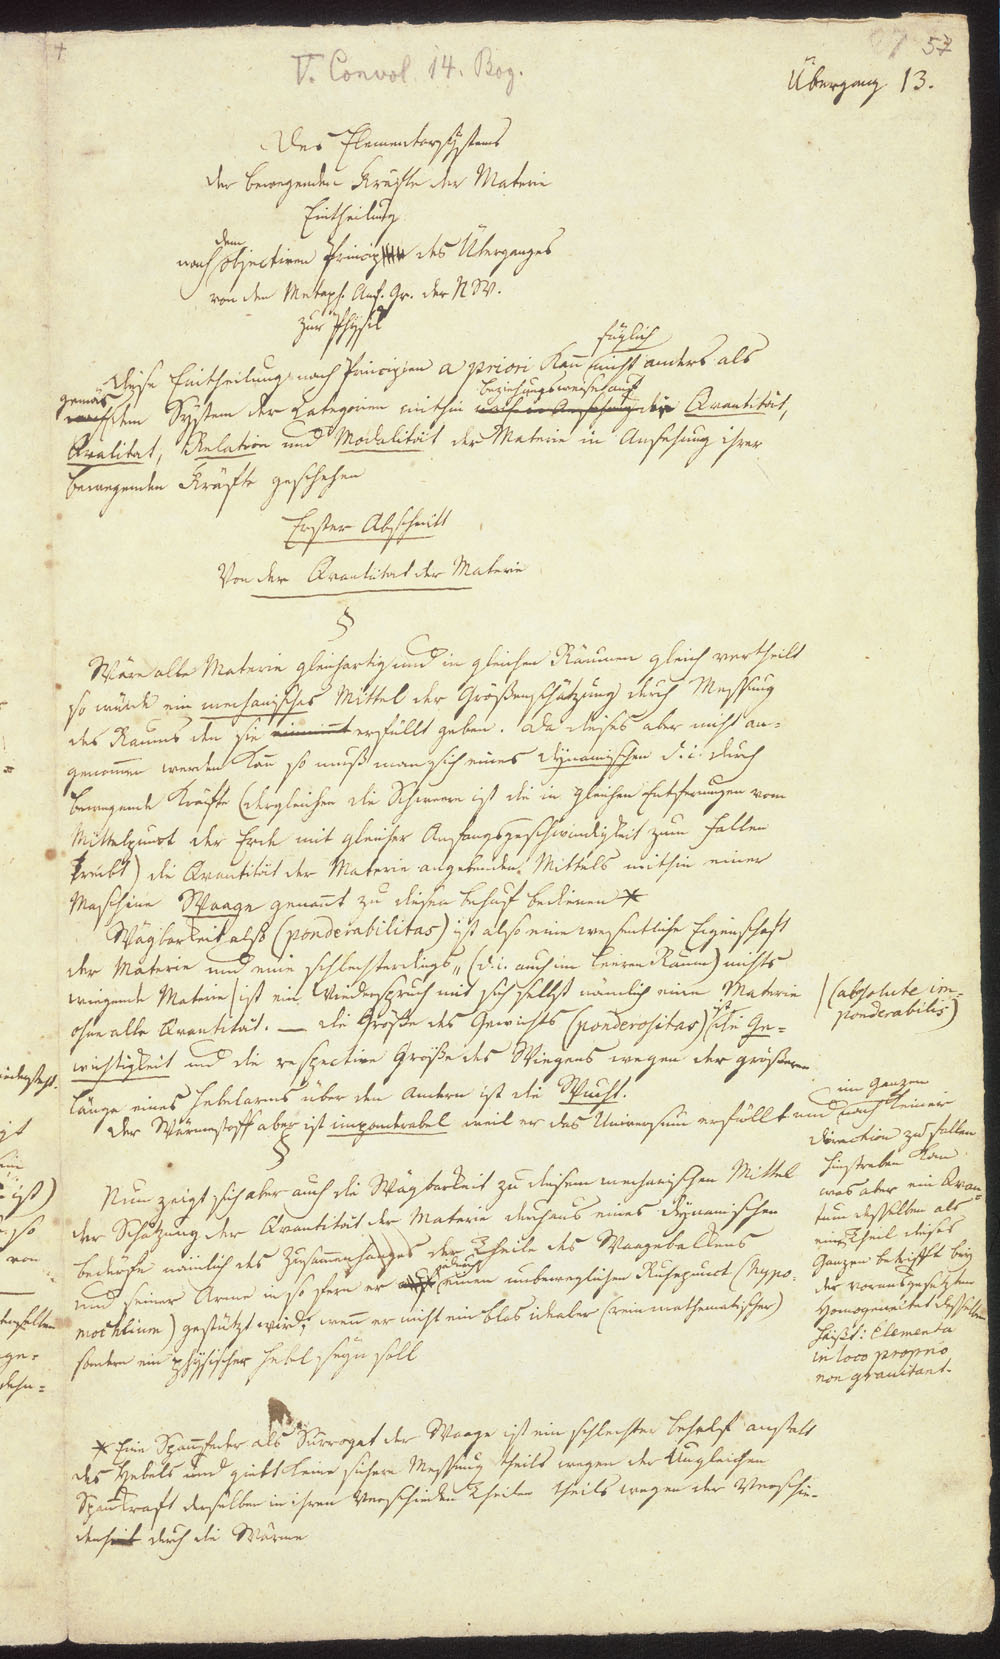 57
V. Convol. 14. Bog.
Übergang 13.
Des Elementarsystems
der bewegenden Kräfte der Materie
Eintheilung
dem
nach objectiven Princip des Überganges
von den Metaph. Anf. Gr. der NW.
zur Physik
füglich
Diese Eintheilung nach Principien a priori kan nicht anders als
gemäs beziehungsweise auf
dem System der Categorien mithin die Qvantität,
Qvalitat, Relation und Modalität der Materie in Ansehung ihrer
bewegenden Kräfte geschehen
Erster Abschnitt
Von der Qvantitat der Materie
§
Wäre alle Materie gleichartig und in gleichen Räumen gleich vertheilt
so würde ein mechanisches Mittel der Größenschätzung durch Messung
des Raums den sie einnimmt erfüllt geben. Da dieses aber nicht an-
genomen werden kan so muß man sich eines dynamischen d. i. durch
bewegende Kräfte (dergleichen die Schweere ist die in gleichen Entfernungen vom
Mittelpunct der Erde mit gleicher Anfangsgeschwindigkeit zum Fallen
treibt) die Qvantität der Materie angebenden Mittels mithin einer
Maschine Waage genannt zu diesem Behuf bedienen *
Wägbarkeit also (ponderabilitas) ist also eine wesentliche Eigenschaft
der Materie und eine schlechterdings (d. i. auch im leeren Raum) nichts
wiegende Materie ist ein Wiederspruch mit sich selbst nämlich eine Materie
(absolute im-
ponderabilis)
ist
ohne alle Qvantität. — die Größe des Gewichts (ponderositas) die Ge-
wichtigkeit und die respective Größe des Wiegens wegen der größeren
Länge eines Hebelarms über den Andern ist die Wucht.
Der Wärmestoff aber ist imponderabel weil er das Universum erfüllt und
im Ganzen
nach keiner
Direction zu fallen
hinstreben kan
was aber ein Qvan-
tum desselben als
eines Theil dieses
Ganzen betrifft bey
der vorausgesetzten
Homogeneitat desselben
heißt: Elementa
in loco proprio
non gravitant.
§
Nun zeigt sich aber auch die Wägbarkeit zu diesem mechanischen Mittel
der Schätzung der Qvantität der Materie durchaus eines dynamischen
bedürfe nämlich des Zusamenhanges der Theile des Waagebalkens
und seiner Arme in so fern er einen unbeweglichen Ruhepunct (hypo-
mochlium) gestützt wird; wenn er nicht ein blos idealer (rein mathematischer)
sondern ein physischer Hebel seyn soll
* Eine Spannfeder als Surrogat der Waage ist ein schlechter Behelf anstatt
des Hebels und giebt keine sichere Messung theils wegen der Ungleichen
Spankraft derselben in ihren Verschieden Theilen theils wegen der Verschie-
denheit durch die Wärme